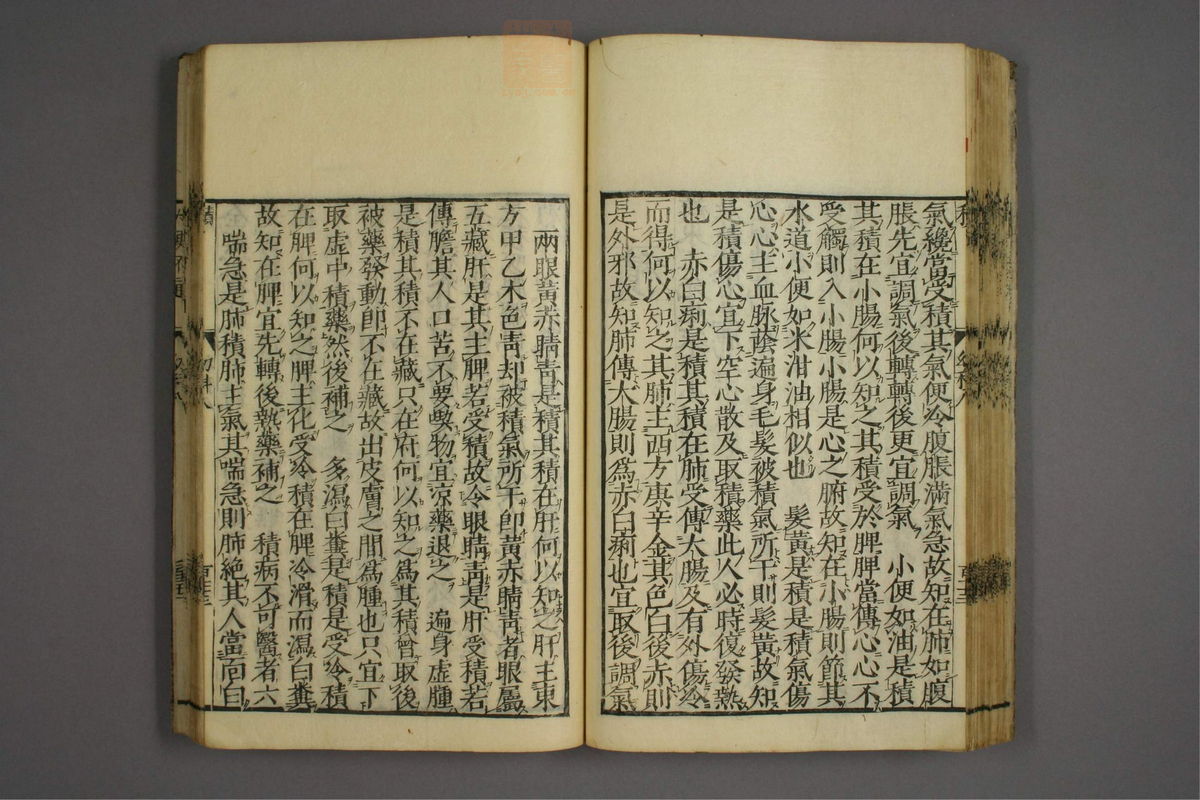 氣纔當受積其氣便冷腹脹滿氣急故知在肺如腹
脹先宜調氣後轉轉後更宜調氣　小便如油是積
其積在小腸何以知之其積受於脾脾當傳心心不
受觸則入小腸小腸是心之腑故知在小腸則節其
水道小便如米泔油相似也　髮黃是積是積氣傷
心心主血脉蔭遍身毛髮被積氣所干則髮黃故知
是積傷心宜下空心散及取積藥此人必時復發熱
也　赤白痢是積其積在肺受傳大腸及有外傷冷
而得何以知之其肺主西方庚辛金其色白後赤則
是外邪故知肺傳大腸則爲赤白痢也宜取後調氣
兩眼黃赤睛靑是積其積在肝何以知之肝主東
方甲乙木色靑却被積氣所干卽黃赤睛靑者眼屬
五藏肝是其主脾若受積故令眼睛靑是肝受積若
傳膽其人口苦不要喫物宜凉藥退之　遍身虛腫
是積其積不在藏只在府何以知之爲其積曾取後
被藥發動卽不在藏故出皮膚之間爲腫也只宜下
取虛中積藥然後補之　多瀉白糞是積是受冷積
在脾何以知之脾主化受冷積在脾冷滑而瀉白糞
故知在脾宜先轉後熱藥補之　積病不可醫者六
喘急是肺積肺主氣其喘急則肺絶其人當面白